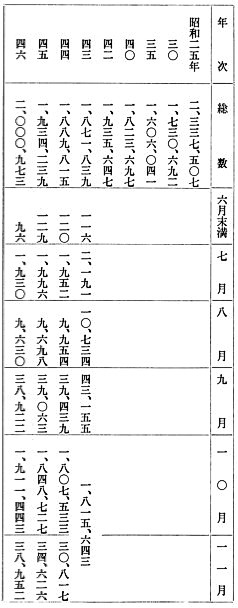 年次 総数 六月末満 七月 八月 九月 一〇月 一一月
昭和二五年 二、三三七、五〇七
三〇 一、七三〇、六九二
三五 一、六〇六、〇四一
四〇 一、八二三、六九七
四二 一、九三五、六四七
四三 一、八七一、八三九 一一六 二、一九一 一〇、七三四 四三、一五五 一、八一五、六四三
四四 一、八八九、八一五 一二〇 一、九五二 九、九五四 三九、四三九 一、八〇七、五三三 三〇、八一七
四五 一、九三四、二三九 一二九 一、九九六 九、六九八 三九、〇六三 一、八四八、七二七 三四、六二六
四六 二、〇〇〇、九七三 九六 一、九三〇 九、六三〇 三八、九二二 一、九一一、四四三 三八、九五二